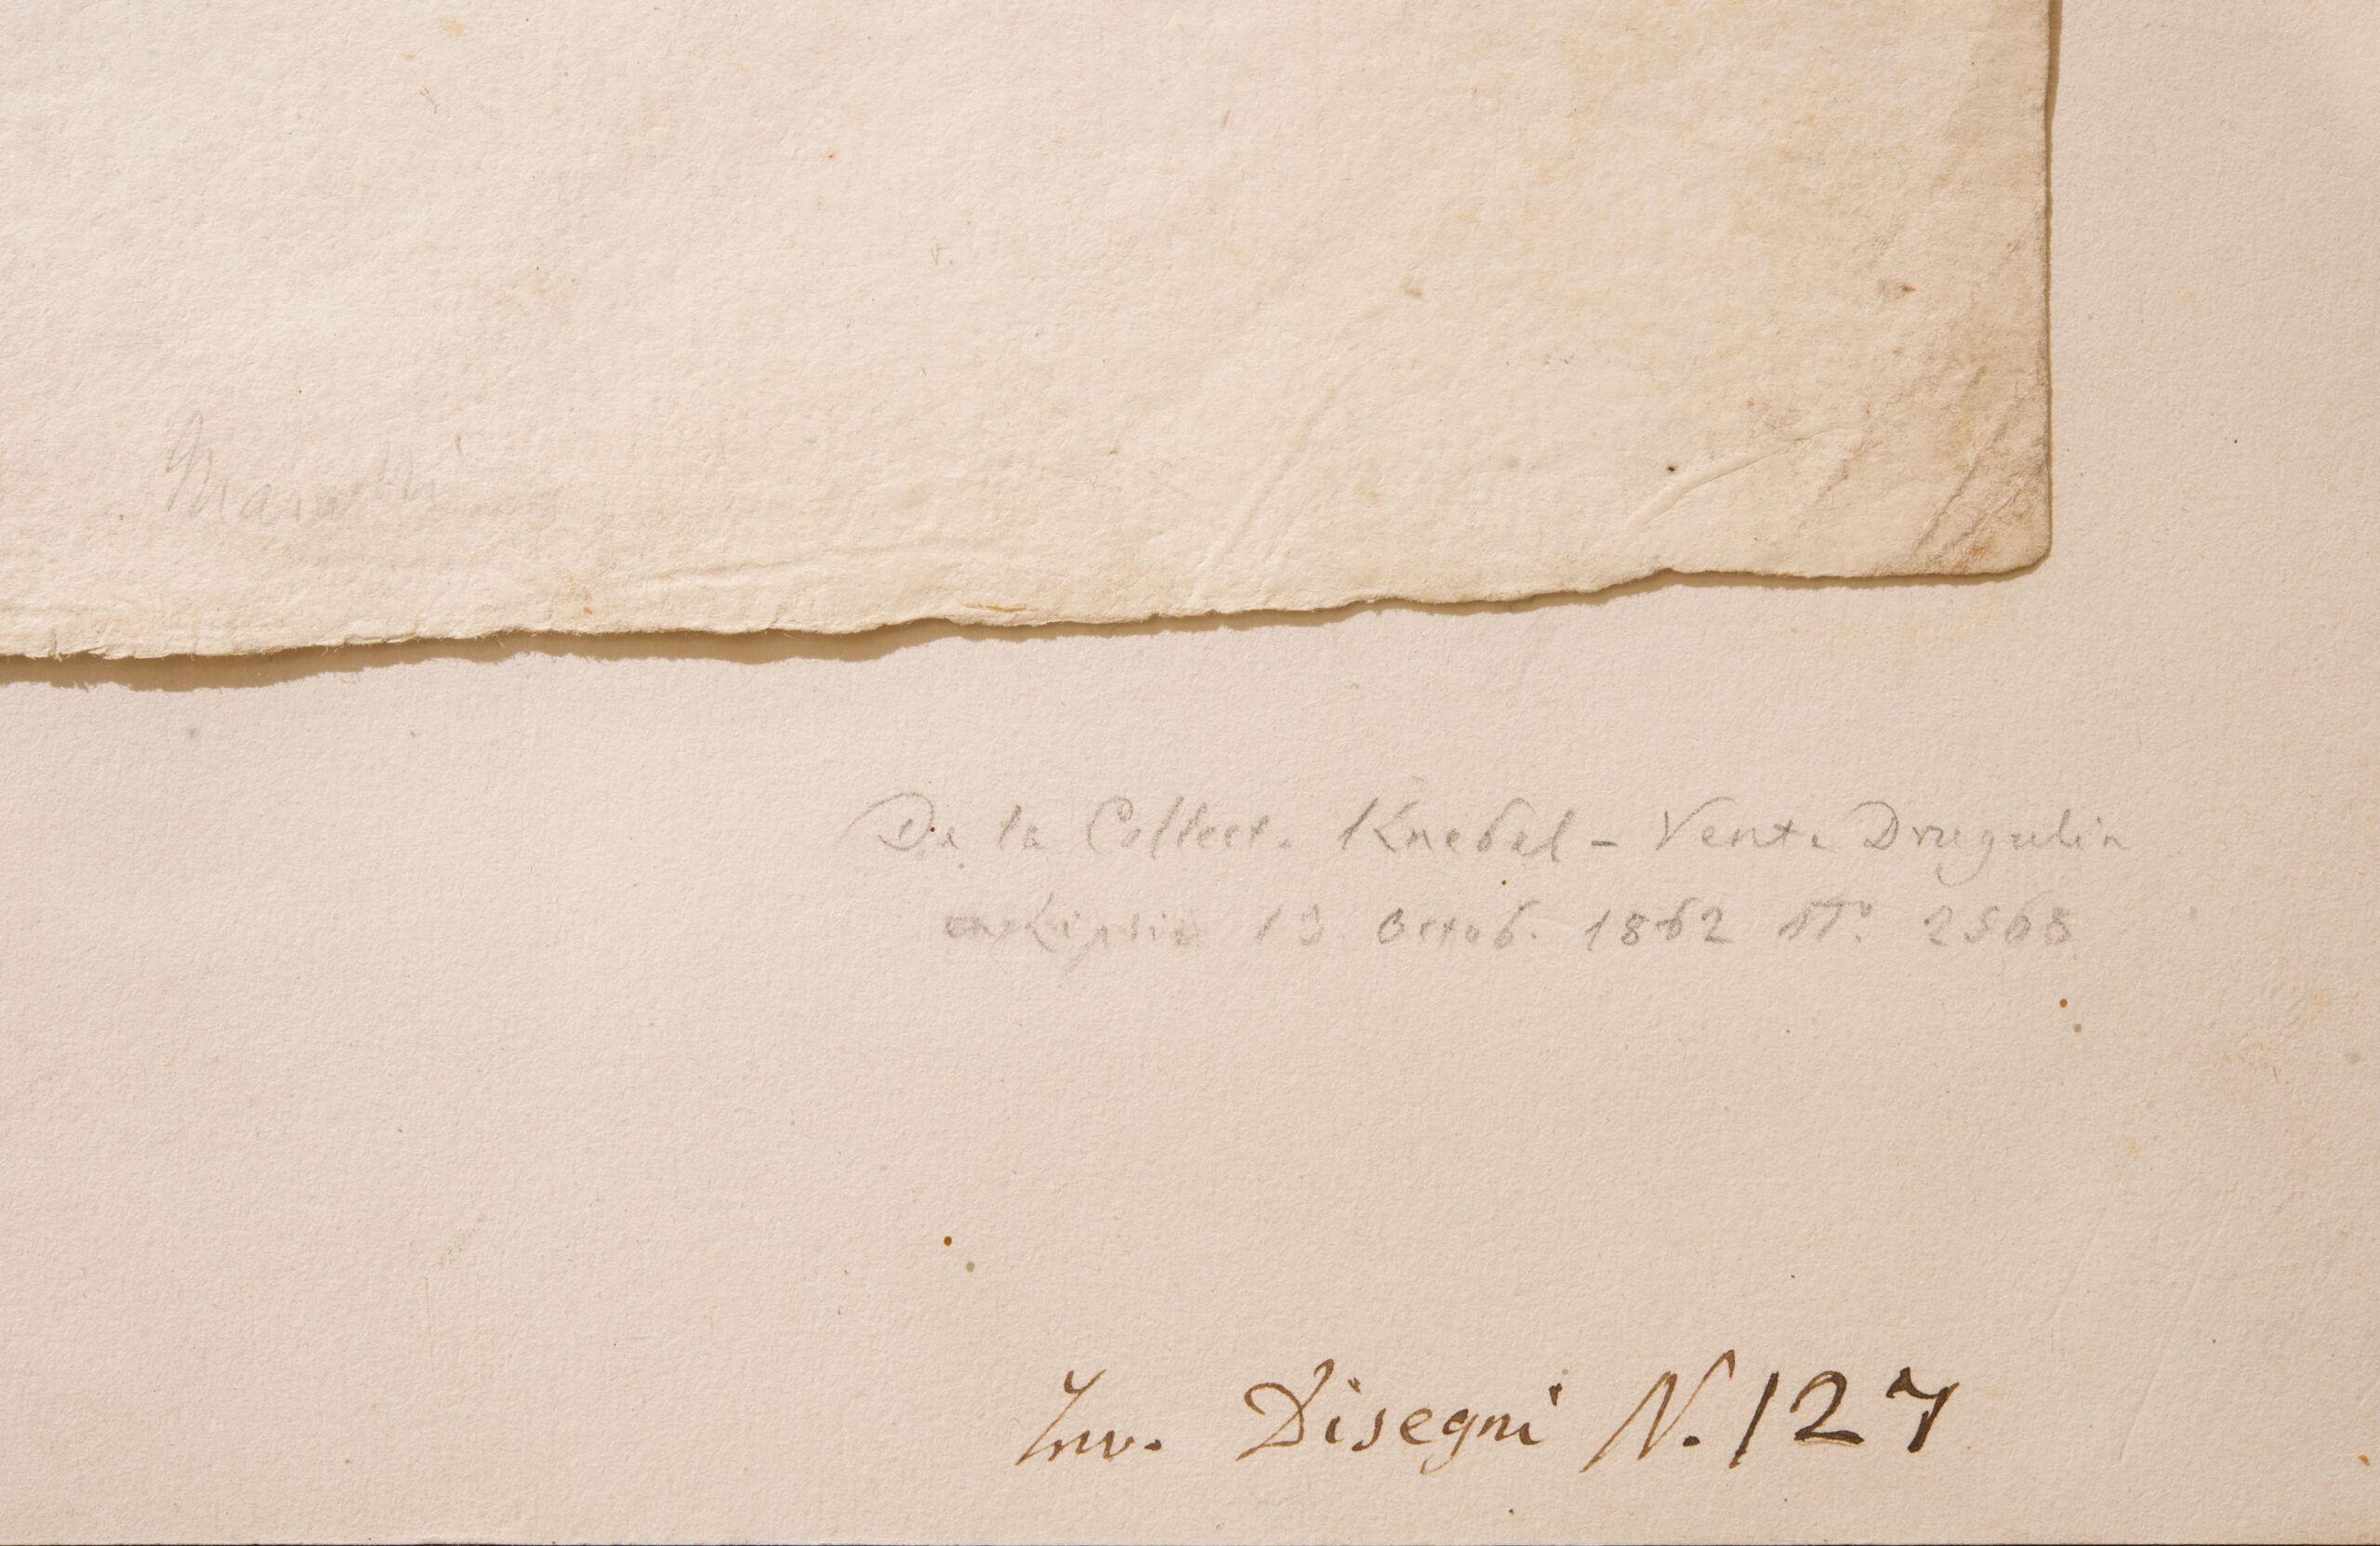 Maratti
De la Collect. Knebel - Vente Drugulin
Lipsia 13 Octob. 1862 N° 2568
Inv. Disegni N. 127